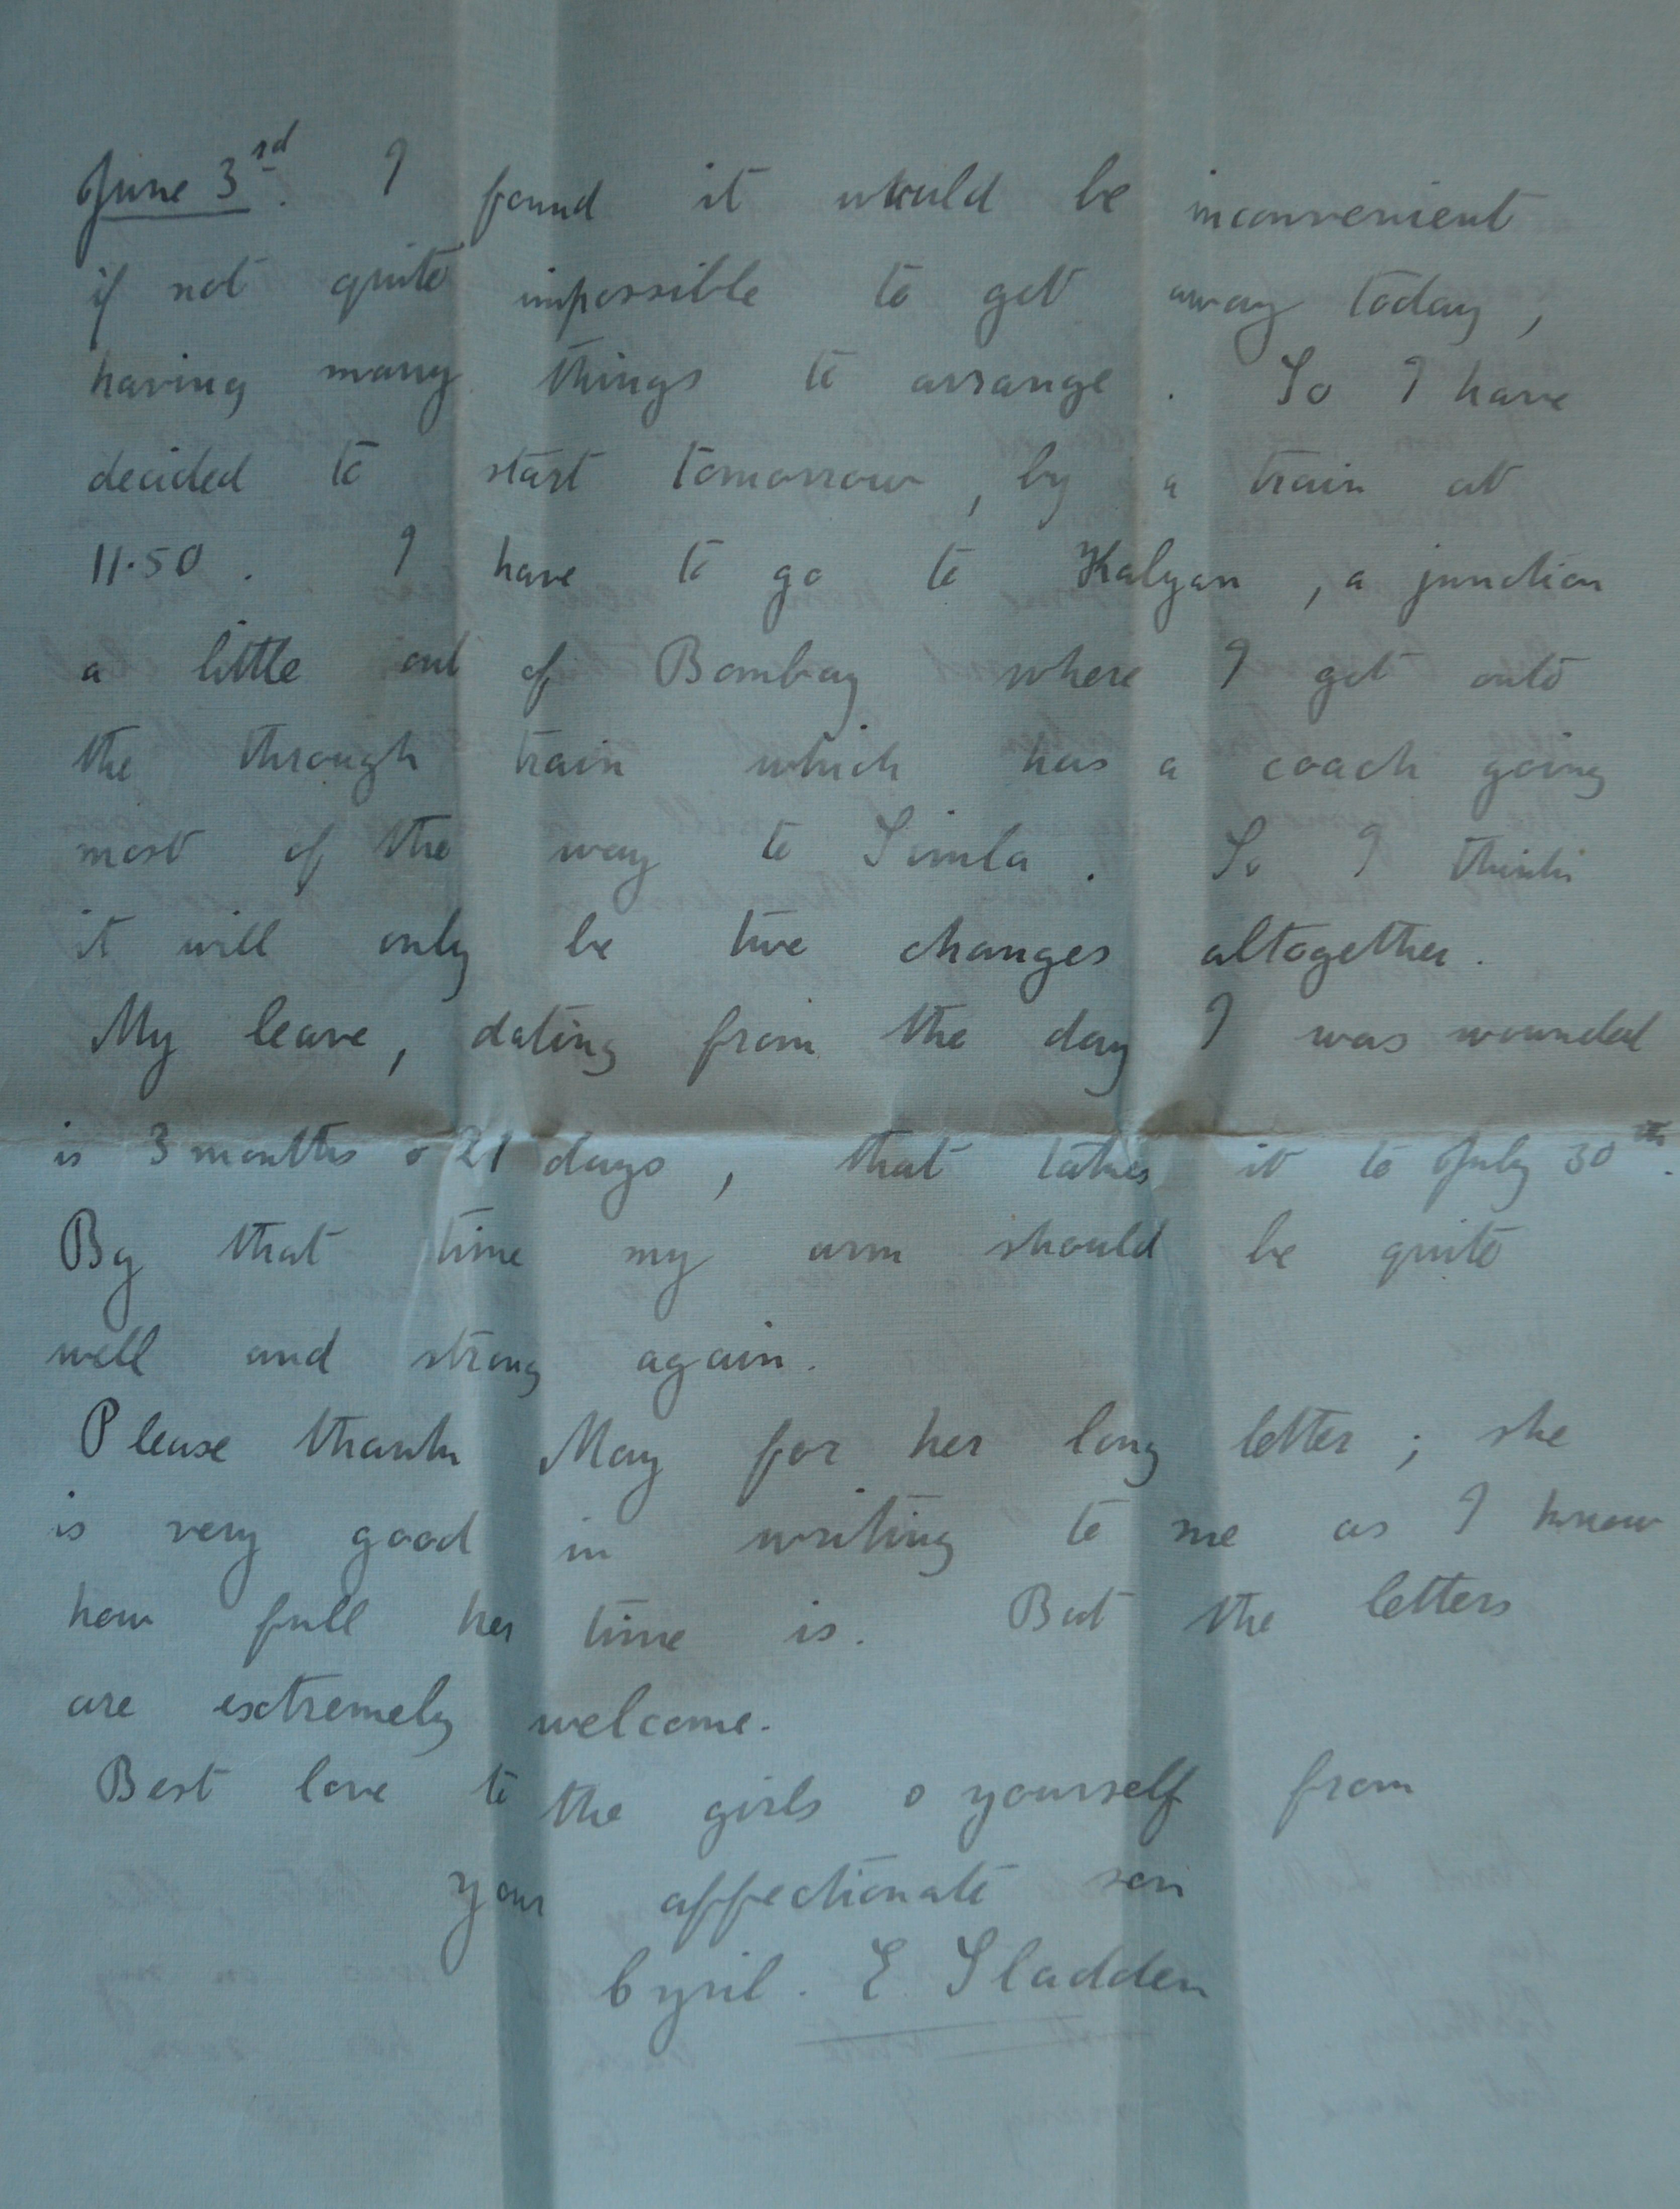 June 3rd. I found it would be inconvenient
if not quite impossible to get away today,
having many things to arrange. So I have
decided to start tomorrow, by a train at
11.50. I have to go to Kalyan, a junction
a little out of Bombay where I get onto
the through train which has a coach going
most of the way to Simla. So I think
it will only be two changes altogether.
My leave, dating from the day I was wounded
is 3 months & 21 days, that takes it to July 30th.
By that time my arm should be quite
well and strong again.
Please thank May for her long letter; she
is very good in writing to me as I know
how full her time is. But the letters
are extremely welcome.
Best love to the girls & yourself from
your affectionate son
Cyril. E Sladden